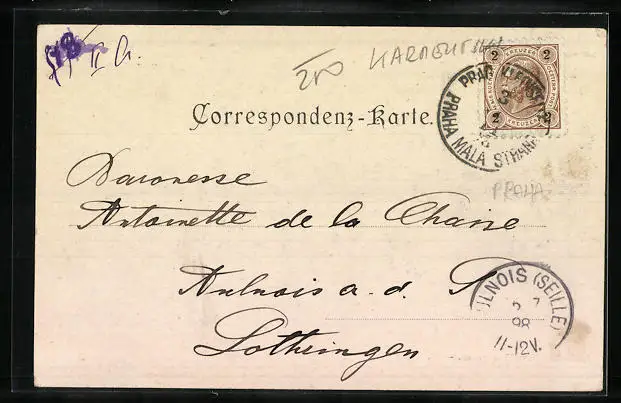 200
Correspondenz-Karte.
2 KREUZER 2
2 KREUZER 2
PRAG KLEINSEITE
PRAHA MALÁ STRANA
PRAHA
Baronesse
Antoinette de la Chaise
Aulnois a. d. S
Lothringen
ULNOIS (SEILLE)
7
98
11-12V.